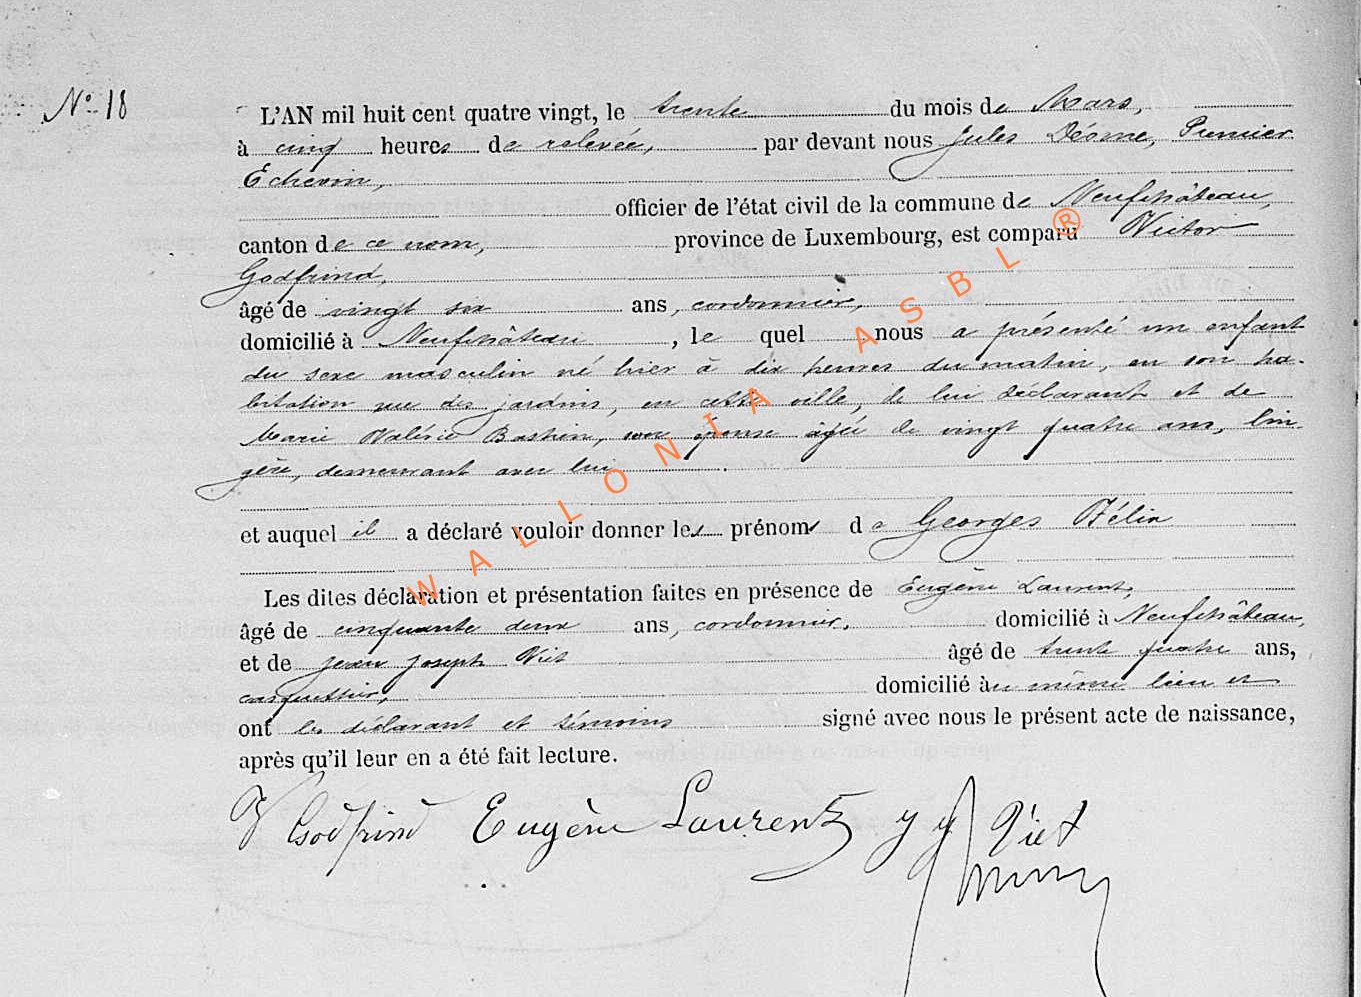 N° 18
L'AN mil huit cent quatre vingt, le trente du mois de Mars,
à cinq heures de relevée, par devant nous Jules Déome, Premier
Echevin,
officier de l'état civil de la commune de Neufchâteau,
canton de ce nom, province de Luxembourg, est comparu Victor
Godfrind,
âgé de vingt six ans, cordonnier,
domicilié à Neufchâteau, lequel nous a présenté un enfant
du sexe masculin né hier à dix heures du matin, en son ha-
bitation rue des jardins, en cette ville, de lui déclarant et de
Marie Valérie Bastin, son épouse âgée de vingt quatre ans, lin-
gère, demeurant avec lui.
et auquel il a déclaré vouloir donner les prénoms de Georges Félix
Les dites déclaration et présentation faites en présence de Eugène Laurent,
âgé de cinquante deux ans, cordonnier, domicilié à Neufchâteau,
et de Jean Joseph Viet âgé de trente quatre ans,
casquettier, domicilié au même lieu et
ont les déclarant et témoins signé avec nous le présent acte de naissance,
après qu'il leur en a été fait lecture.
V Godfrind Eugène Laurent J J Viet
WALLONIA ASBL ®